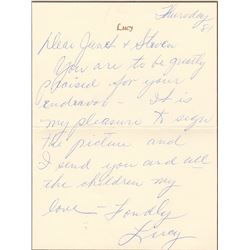 Thursday
8
Lucy
Dear Janet & Steven
You are to be greatly
praised for your
endeavor - It is
my pleasure to sign
the picture and
I send you and all
the children my
love - Fondly
Lucy